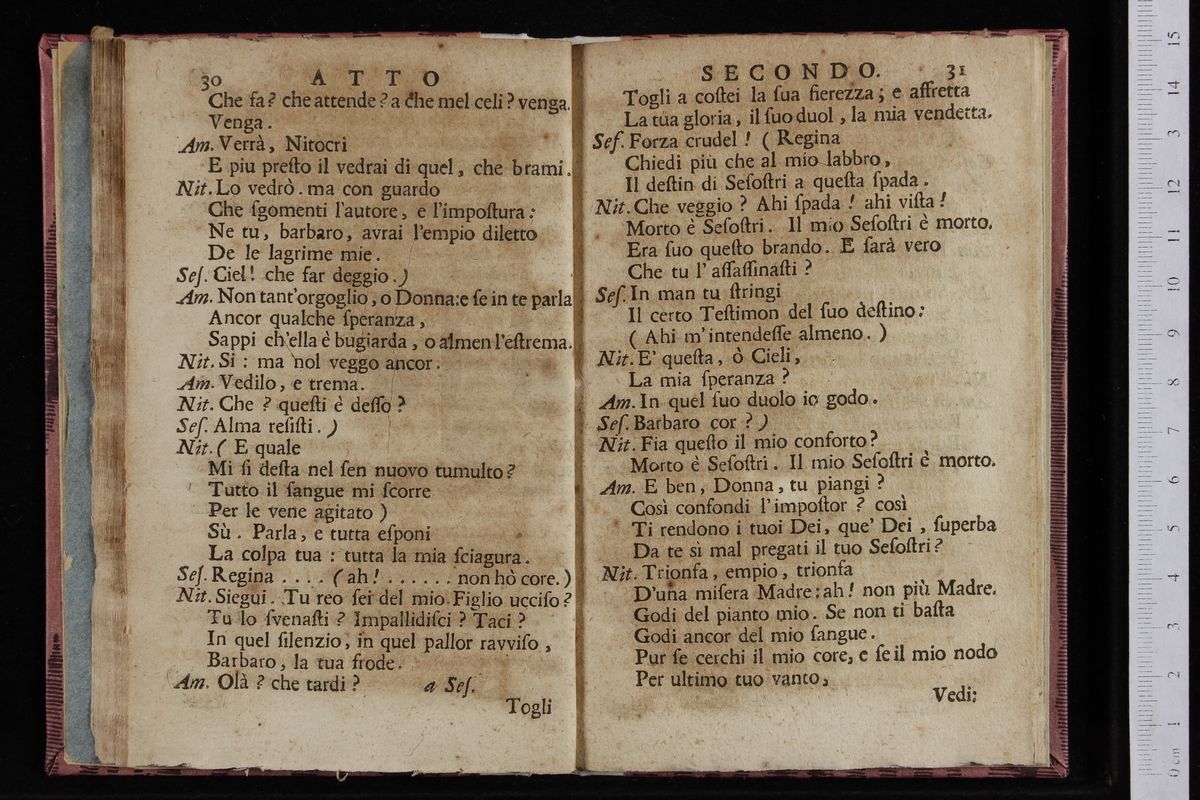 30 ATTO
Che fa? che attende? a che mel celi? venga.
Venga.
Am. Verrà, Nitocri
E piu preſto il vedrai di quel, che brami.
Nit. Lo vedrò. ma con guardo
Che ſgomenti l'autore, e l'impoſtura:
Ne tu, barbaro, avrai l'empio diletto
De le lagrime mie.
Seſ. Ciel! che far deggio.)
Am. Non tant'orgoglio, o Donna: e ſe in te parla
Ancor qualche ſperanza,
Sappi ch'ella è bugiarda, o almen l'eſtrema.
Nit. Si: ma nol veggo ancor.
Am. Vedilo, e trema.
Nit. Che? queſti è deſſo?
Seſ. Alma reſiſti.)
Nit. (E quale
Mi ſi deſta nel ſen nuovo tumulto?
Tutto il ſangue mi ſcorre
Per le vene agitato)
Sù. Parla, e tutta eſponi
La colpa tua: tutta la mia ſciagura.
Seſ. Regina .... (ah! ...... non hò core.)
Nit. Siegui. Tu reo ſei del mio Figlio ucciſo?
Tu lo ſvenaſti? Impallidiſci? Taci?
In quel ſilenzio, in quel pallor ravviſo,
Barbaro, la tua frode.
Am. Olà? che tardi? a Seſ.
Togli
SECONDO. 31
Togli a coſtei la ſua fierezza; e affretta
La tua gloria, il ſuo duol, la mia vendetta.
Seſ. Forza crudel! (Regina
Chiedi più che al mio labbro,
Il deſtin di Seſoſtri a queſta ſpada.
Nit. Che veggio? Ahi ſpada! ahi viſta!
Morto è Seſoſtri. Il mio Seſoſtri è morto.
Era ſuo queſto brando. E ſarà vero
Che tu l'aſſaſſinaſti?
Seſ. In man tu ſtringi
Il certo Teſtimon del ſuo deſtino:
(Ahi m'intendeſſe almeno.)
Nit. E' queſta, ò Cieli,
La mia ſperanza?
Am. In quel ſuo duolo io godo.
Seſ. Barbaro cor?)
Nit. Fia queſto il mio conforto?
Morto è Seſoſtri. Il mio Seſoſtri è morto.
Am. E ben, Donna, tu piangi?
Così confondi l'impoſtor? così
Ti rendono i tuoi Dei, que' Dei, ſuperba
Da te sì mal pregati il tuo Seſoſtri?
Nit. Trionfa, empio, trionfa
D'una miſera Madre: ah! non più Madre.
Godi del pianto mio. Se non ti baſta
Godi ancor del mio ſangue.
Pur ſe cerchi il mio core, e ſe il mio nodo
Per ultimo tuo vanto,
Vedi:
0 cm 1 2 3 4 5 6 7 8 9 10 11 12 13 14 15